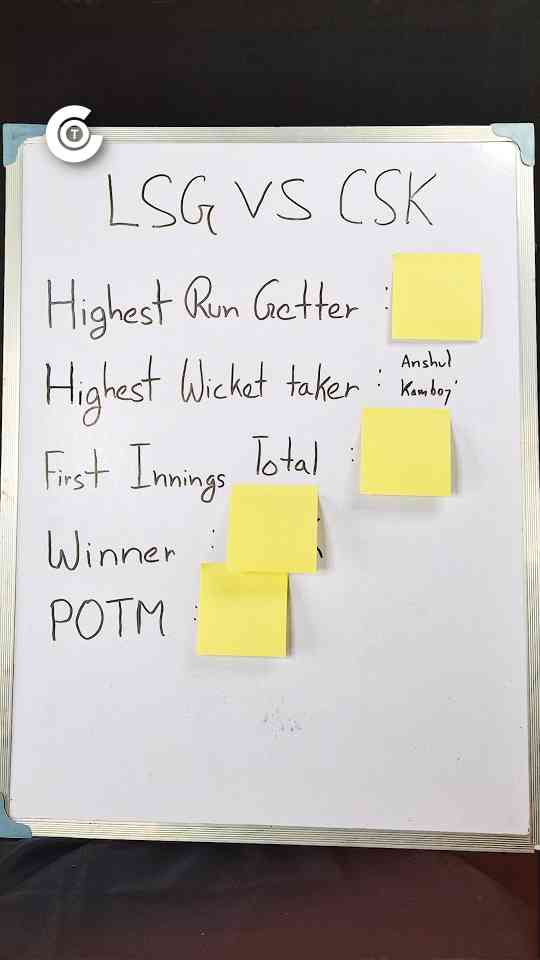 T
LSG VS CSK
Highest Run Getter :
Highest Wicket taker : Anshul
Kamboj
First Innings Total :
Winner :
POTM :